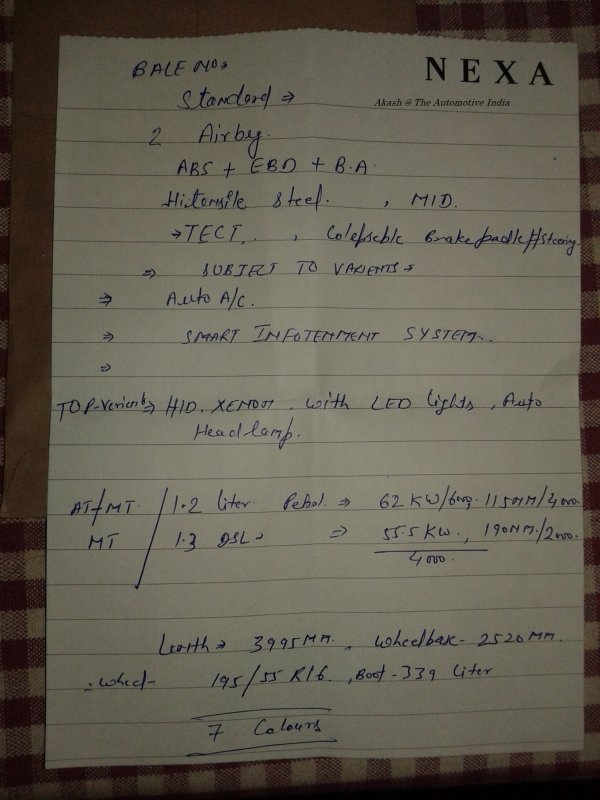 NEXA
Akash @ The Automotive India
BALENO→
Standerd ⇒
2 Airbeg.
ABS + EBD + B.A.
Hitensile steel. , MID.
→TECT. , Colepseble Brake padle//Steering
⇒ SUBJECT TO VARIENTS→
⇒ Auto A/c.
⇒ SMART INFOTENMENT SYSTEM..
⇒
TOP-Verient⇒ HID. XENON , with LED lights , Auto
Head lamp.
AT/MT. / 1.2 liter. Petrol. ⇒ 62 KW/6000, 115NM/4000.
MT / 1.3 DSL→ ⇒ 55.5 KW. , 190NM./2000.
4000.
Lenth → 3995MM. , Wheelbase- 2520MM.
:Wheel- 195/55 R16. , Boot - 339 Liter
7 Colours